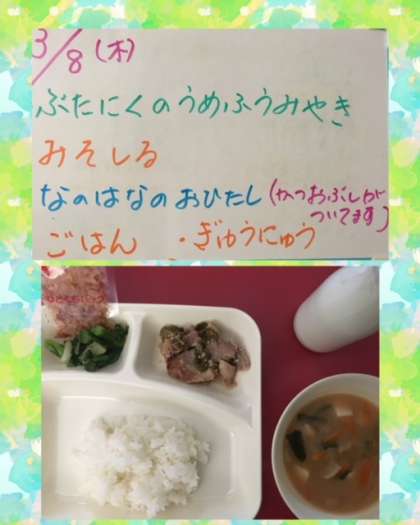 3/8(木)
ぶたにくのうめふうみやき
みそしる
なのはなのおひたし(かつおぶしが
ついてます)
ごはん ・ぎゅうにゅう